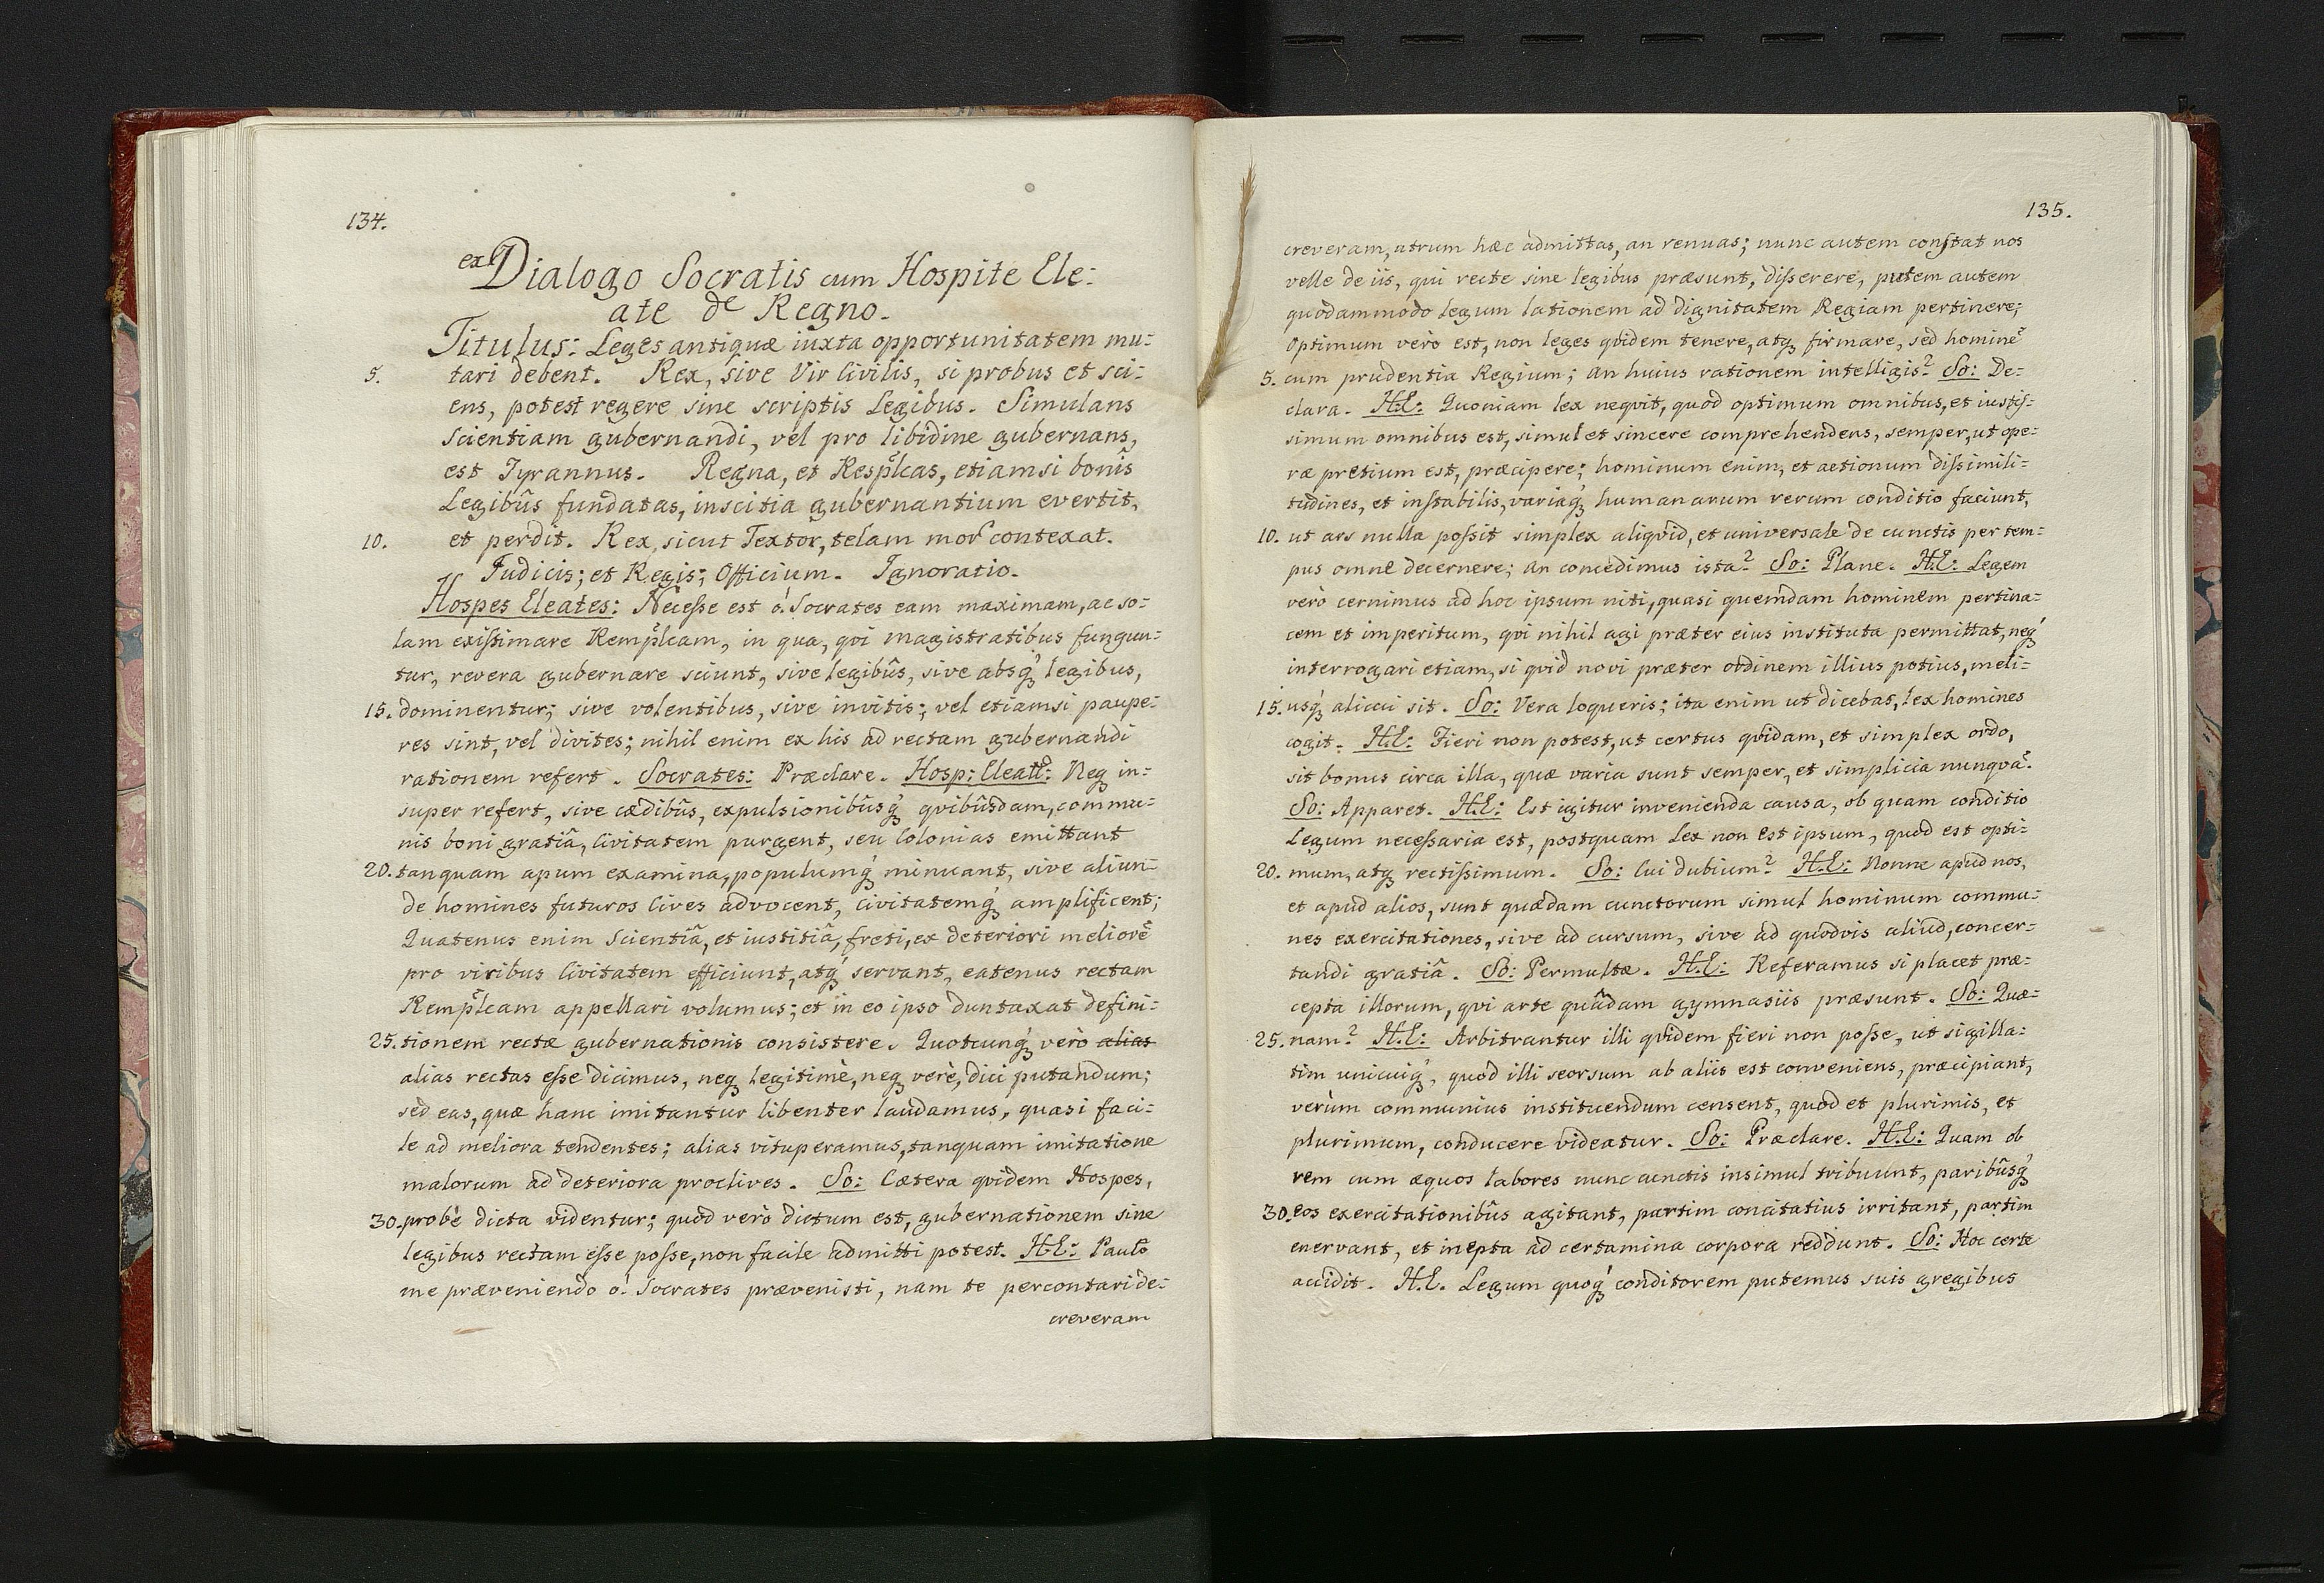 134.
ex Dialogo Socratis cum Hospite Ele:
ate de Regno.
Titulus: Leges antiquæ iuxta opportunitatem mu:
5. tari debent. Rex, sive Vir Civilis, si probus et sci:
ens, potest regere sine scriptis Legibus. Simulans
scientiam gubernandi, vel pro libidine gubernans,
est Tyrannus. Regna, et Respl̃cas, etiamsi bonis
Legibûs fundatas, inscitia gubernantium evertit,
10. et perdit. Rex, sicut Textor, telam mor̃ contexat.
Judicis; et Regis; Officium. Ignoratio.
Hospes Eleates: Necesse est ó Socrates eam maximam, ac so:
lam existimare Rempl̃cam, in qua, qvi magistratibus fungun:
tur, revera gubernare sciunt, sive legibûs, sive absq́ legibus,
15. dominentur; sive volentibus, sive invitis; vel etiamsi paupe:
res sint, vel divites; nihil enim ex his ad rectam gubernandi
rationem refert. Socrates: Præclare. Hosp: Eleatˢ: Neq in:
super refert, sive cædibûs, expulsionibûsq́ qvibûsdam, commu:
nis boni gratiâ, Civitatem purgent, seu Colonias emittant
20. tanquam apum examina, populumq́ minuant, sive aliun:
de homines futuros Cives advocent, civitatemq́ amplificent;
Quatenus enim Scientiâ, et iustitiâ, freti, ex deteriori meliorẽ
pro viribus Civitatem efficiunt, atq́ servant, eatenus rectam
Rempl̃cam appellari volumus; et in eo ipso duntaxat defini:
25. tionem rectæ gubernationis consistere. Quotcunq́ verò alias
alias rectas esse dicimus, neq legitimè, neq verè, dici putandum;
sed eas, quæ hanc imitantur libenter laudamus, quasi faci:
le ad meliora tendentes; alias vituperamus, tanquam imitatione
malorum ad deteriora proclives. So: Cætera qvidem Hospes,
30. probè dicta videntur; quod verò dictum est, gubernationem sine
legibus rectam esse posse, non facile admitti potest. H.E: Paulò
me præveniendo ó Socrates prævenisti, nam te percontari de:
creveram
135.
creveram, utrum hæc admittas, an renuas; nunc autem constat nos
velle de iis, qui recte sine legibus præsunt, disserere, putem autem
quodammodo legum lationem ad dignitatem Regiam pertinere;
Optimum verò est, non leges qvidem tenere, atq firmare, sed hominẽ
5. cum prudentia Regium; an huius rationem intelligis? So: De:
clara. H.E: Quoniam lex neqvit, quod optimum omnibus, et iustis:
simum omnibus est, simul et sincere comprehendens, semper, ut ope:
ræ pretium est, præcipere; hominum enim, et actionum dissimili:
tudines, et instabilis, variaq́ humanarum rerum conditio faciunt,
10. ut ars nulla possit simplex aliqvid, et universale de cunctis per tem:
pus omne decernere; an concedimus ista? So: Plane. H.E: Legem
verò cernimus ad hoc ipsum niti, quasi quemdam hominem pertina:
cem et imperitum, qvi nihil agi præter eius instituta permittat, neq́
interrogari etiam, si qvid novi præter ordinem illius potius, meli:
15. usq́ alicui sit. So: Vera loqueris; ita enim ut dicebas, lex homines
cogit. H.E: Fieri non potest, ut certus qvidam, et simplex ordo,
sit bonus circa illa, quæ varia sunt semper, et simplicia nunqvã.
So: Apparet. H.E: Est igitur invenienda causa, ob quam conditio
Legum necessaria est, postquam Lex non est ipsum, quod est opti:
20. mum, atq rectissimum. So: Cui dubium? H.E: Nonne apud nos,
et apud alios, sunt quædam cunctorum simul hominum commu:
nes exercitationes, sive ad cursum, sive ad quodvis aliud, concer:
tandi gratiâ. So: Permultæ. H.E: Referamus si placet præ:
cepta illorum, qvi arte quâdam gymnasiis præsunt. So: Quæ:
25. nam? H.E: Arbitrantur illi qvidem fieri non posse, ut sigilla:
tim unicuiq́, quod illi seorsum ab aliis est conveniens, præcipiant,
verùm communius instituendum censent, quod et plurimis, et
plurimum, conducere videatur. So: Præclare. H.E: Quam ob
rem cum æquos labores nunc cunctis insimul tribuunt, paribûsq́
30. eos exercitationibûs agitant, partim concitatius irritant, partim
enervant, et inepta ad certamina corpora reddunt. So: Hoc certe
accidit. H.E. Legum quoq́ conditorem putemus suis gregibus